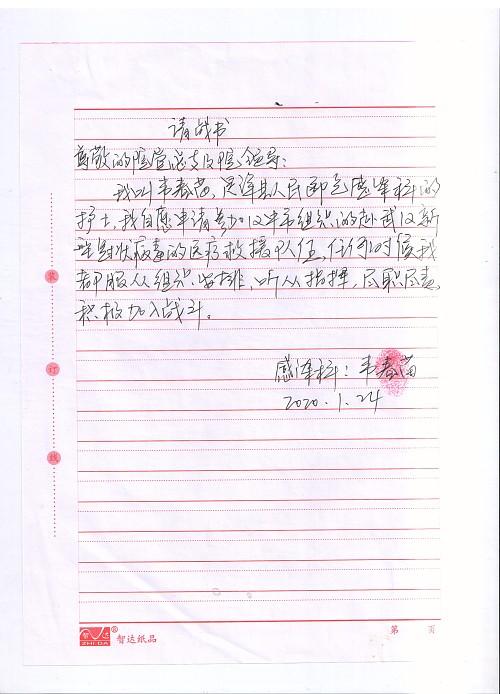 请战书
尊敬的医院党总支及院领导：
我叫韦春苗，是泽县人民医院感染科的
护士，我自愿申请参加汉中市组织的赴武汉新
型冠状病毒的医疗救援队伍，任何时候我
都服从组织安排，听从指挥，尽职尽责
积极加入战斗。
感染科：韦春苗
2020.1.24
装
订
线
智达
ZHI.DA
®
智达纸品
第 页